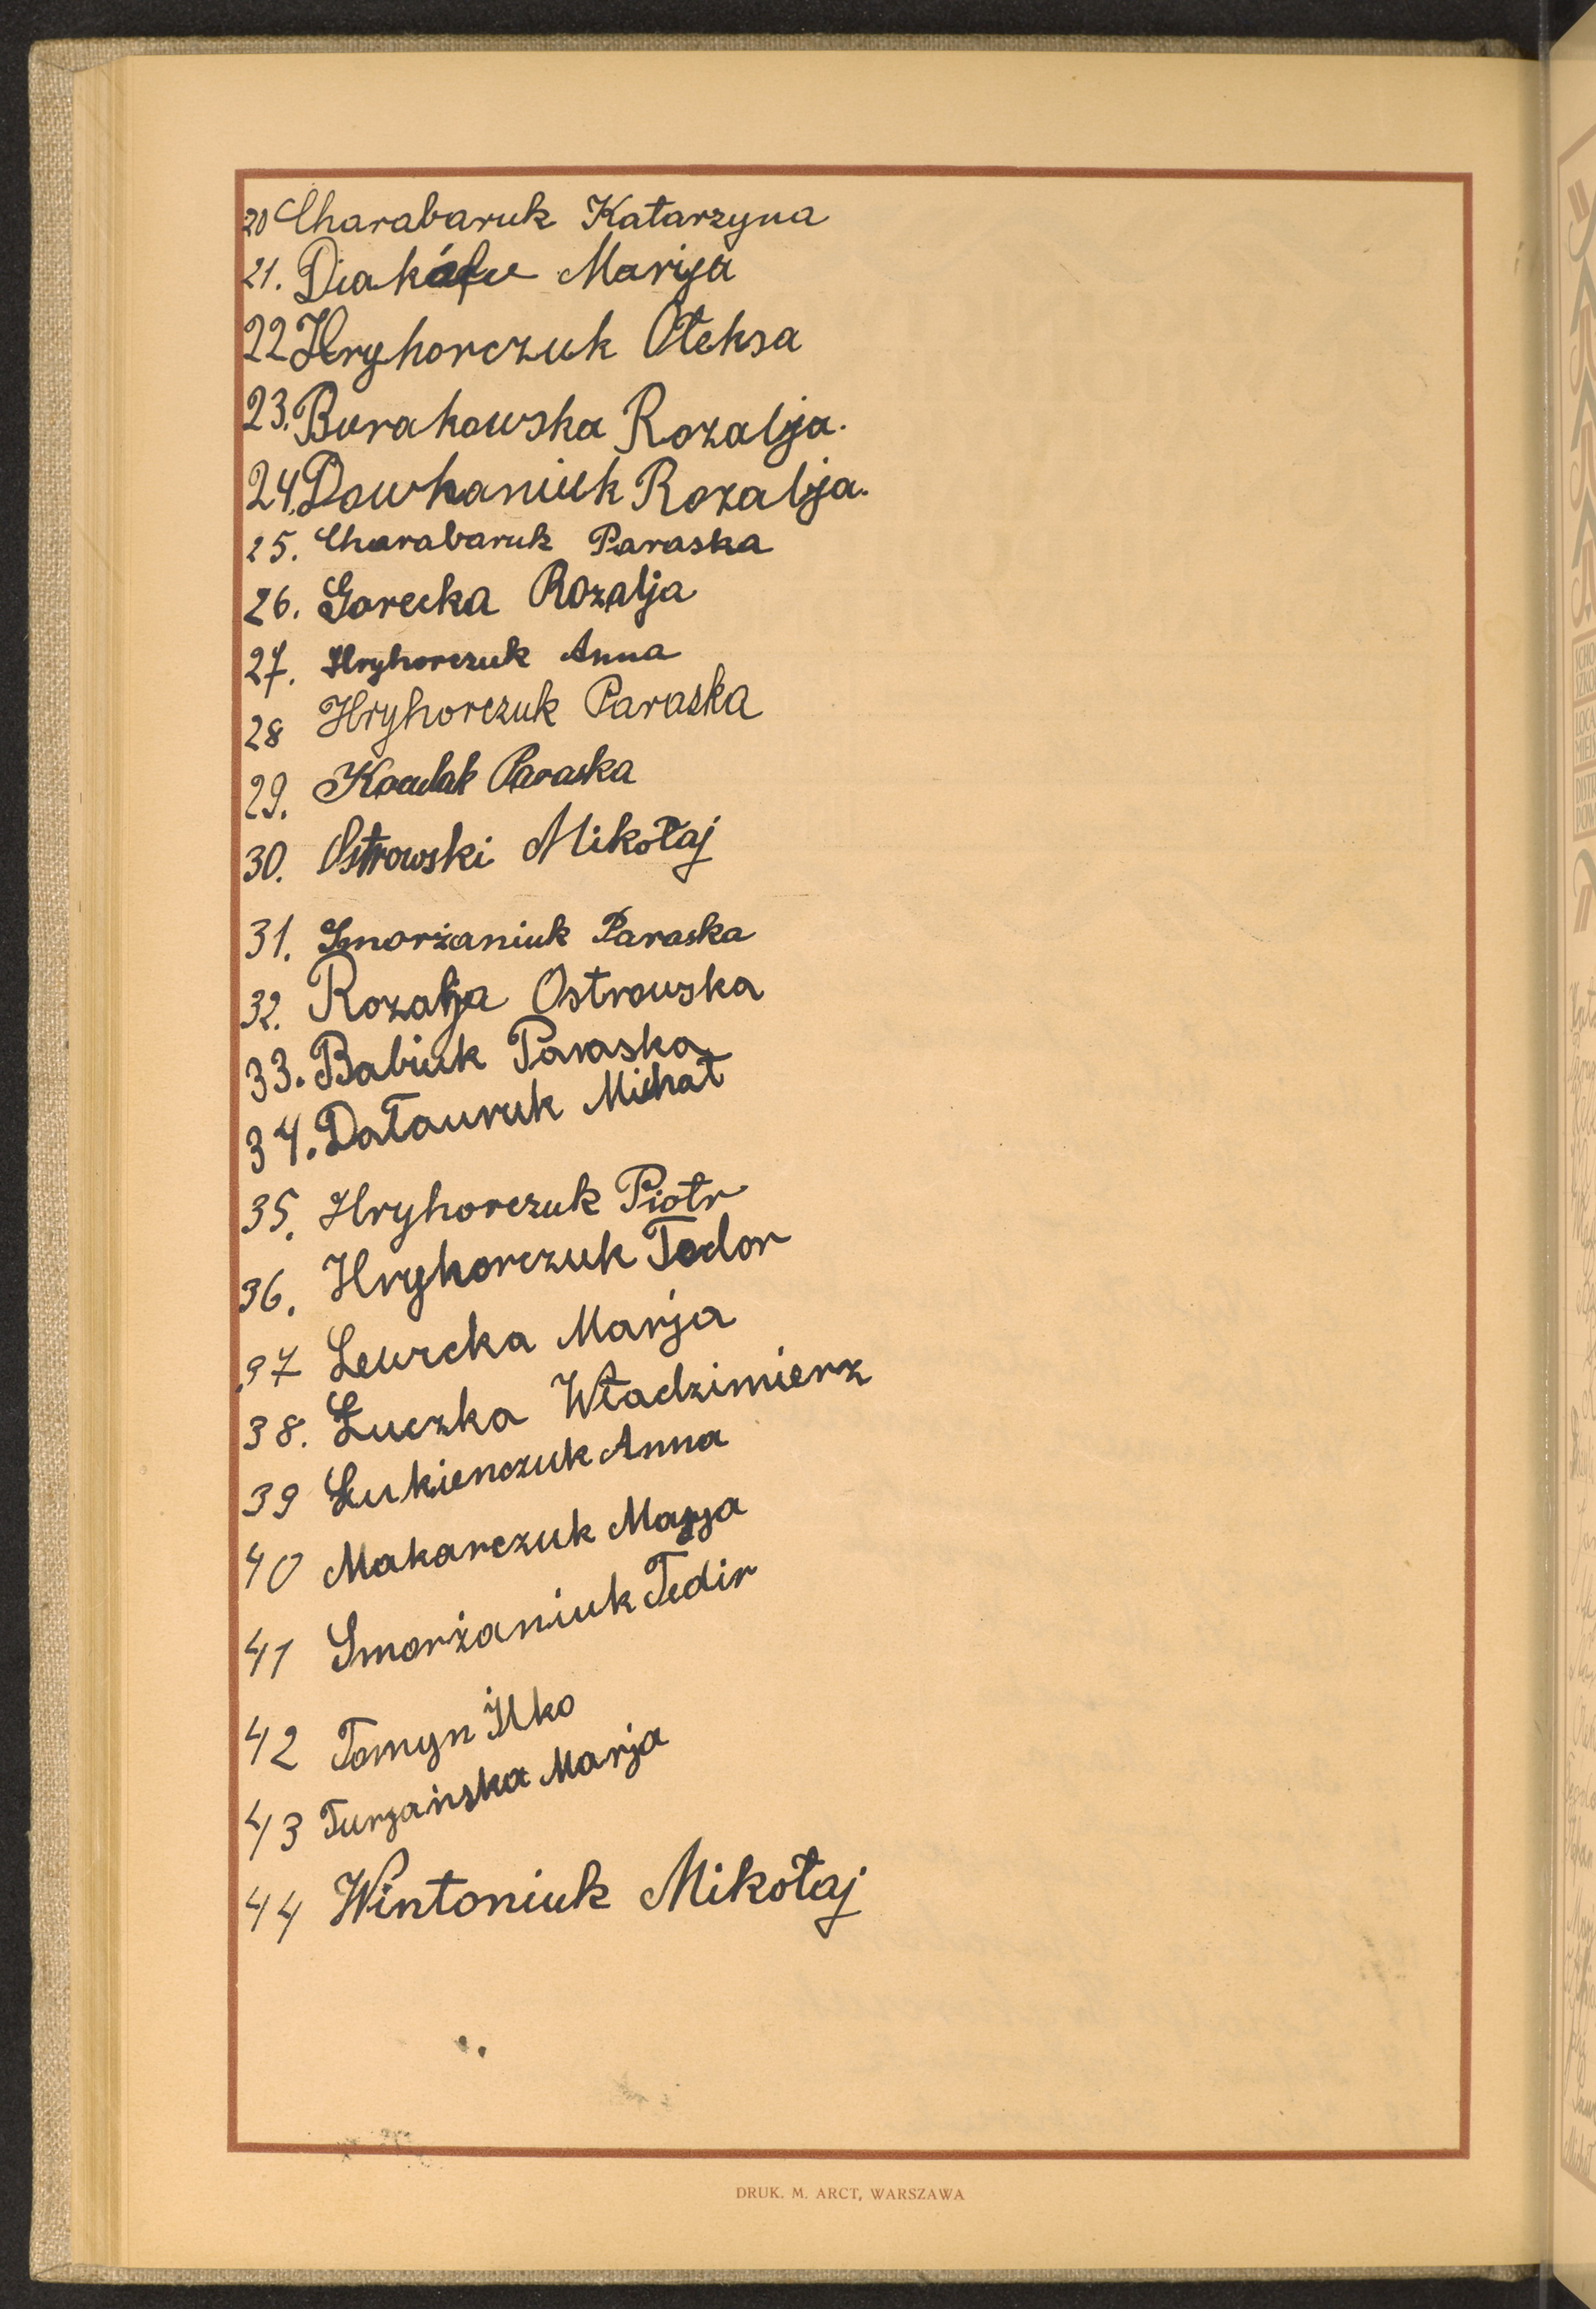 20 Charabaruk Katarzyna
21. Marija
22 Hryhorczuk Ołeksa
23. Burakowska Rozalja.
24. Dowhaniuk Rozalja.
25. Charabaruk Paraska
26. Gorecka Rozalja
27. Hryhorczuk Anna
28 Hryhorczuk Paraska
29. Paraska
30. Ostrowski Mikołaj
31. Smorżaniuk Paraska
32. Rozalja Ostrowska
33. Babiuk Paraska
34. Michał
35. Hryhorczuk Piotr
36. Hryhorczuk Fedor
37 Lewicka Marja
38. Łuczka Władzimierz
39 Łukienczuk Anna
40 Makarczuk Marja
41 Smorżaniuk Fedir
42 Tomyn Ilko
43 Turzańska Marja
44 Wintoniuk Mikołaj
DRUK. M. ARCT, WARSZAWA